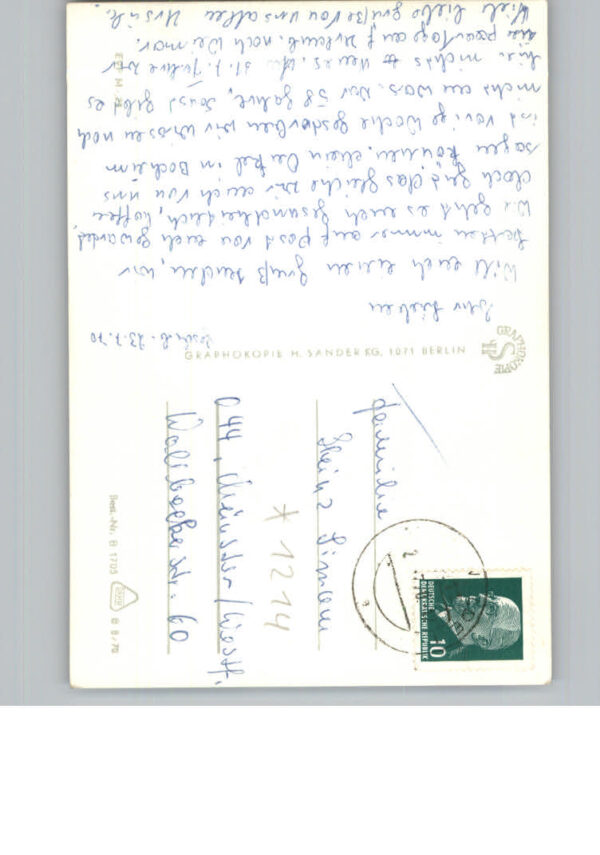 Ihr Lieben
Will euch einen Gruß senden, wir
hatten immer auf Post von euch gewartet.
Wie geht es euch gesundheitlich, hoffen
doch gut, das gleiche wir auch von uns
sagen können. Mein Onkel in Bochum
ist vorige Woche gestorben wir wissen noch
nicht an was. War 58 Jahre, sonst gibt es
hier nichts neues. Am 31.7. fahren wir
ein paar Tage auf Urlaub, nach Weimar.
Viele liebe Grüße von uns allen
23.7.70
GRAPHOKOPIE H. SANDER KG, 1071 BERLIN
GRAPHOKOPIE
HS
GRAPHOKOPIE
Familie
Heinz
D 44, Münster/Westf.
60
* 1214
Best.-Nr. B 1705
B 8/70
DEUTSCHE
DEMOKRATISCHE REPUBLIK
10